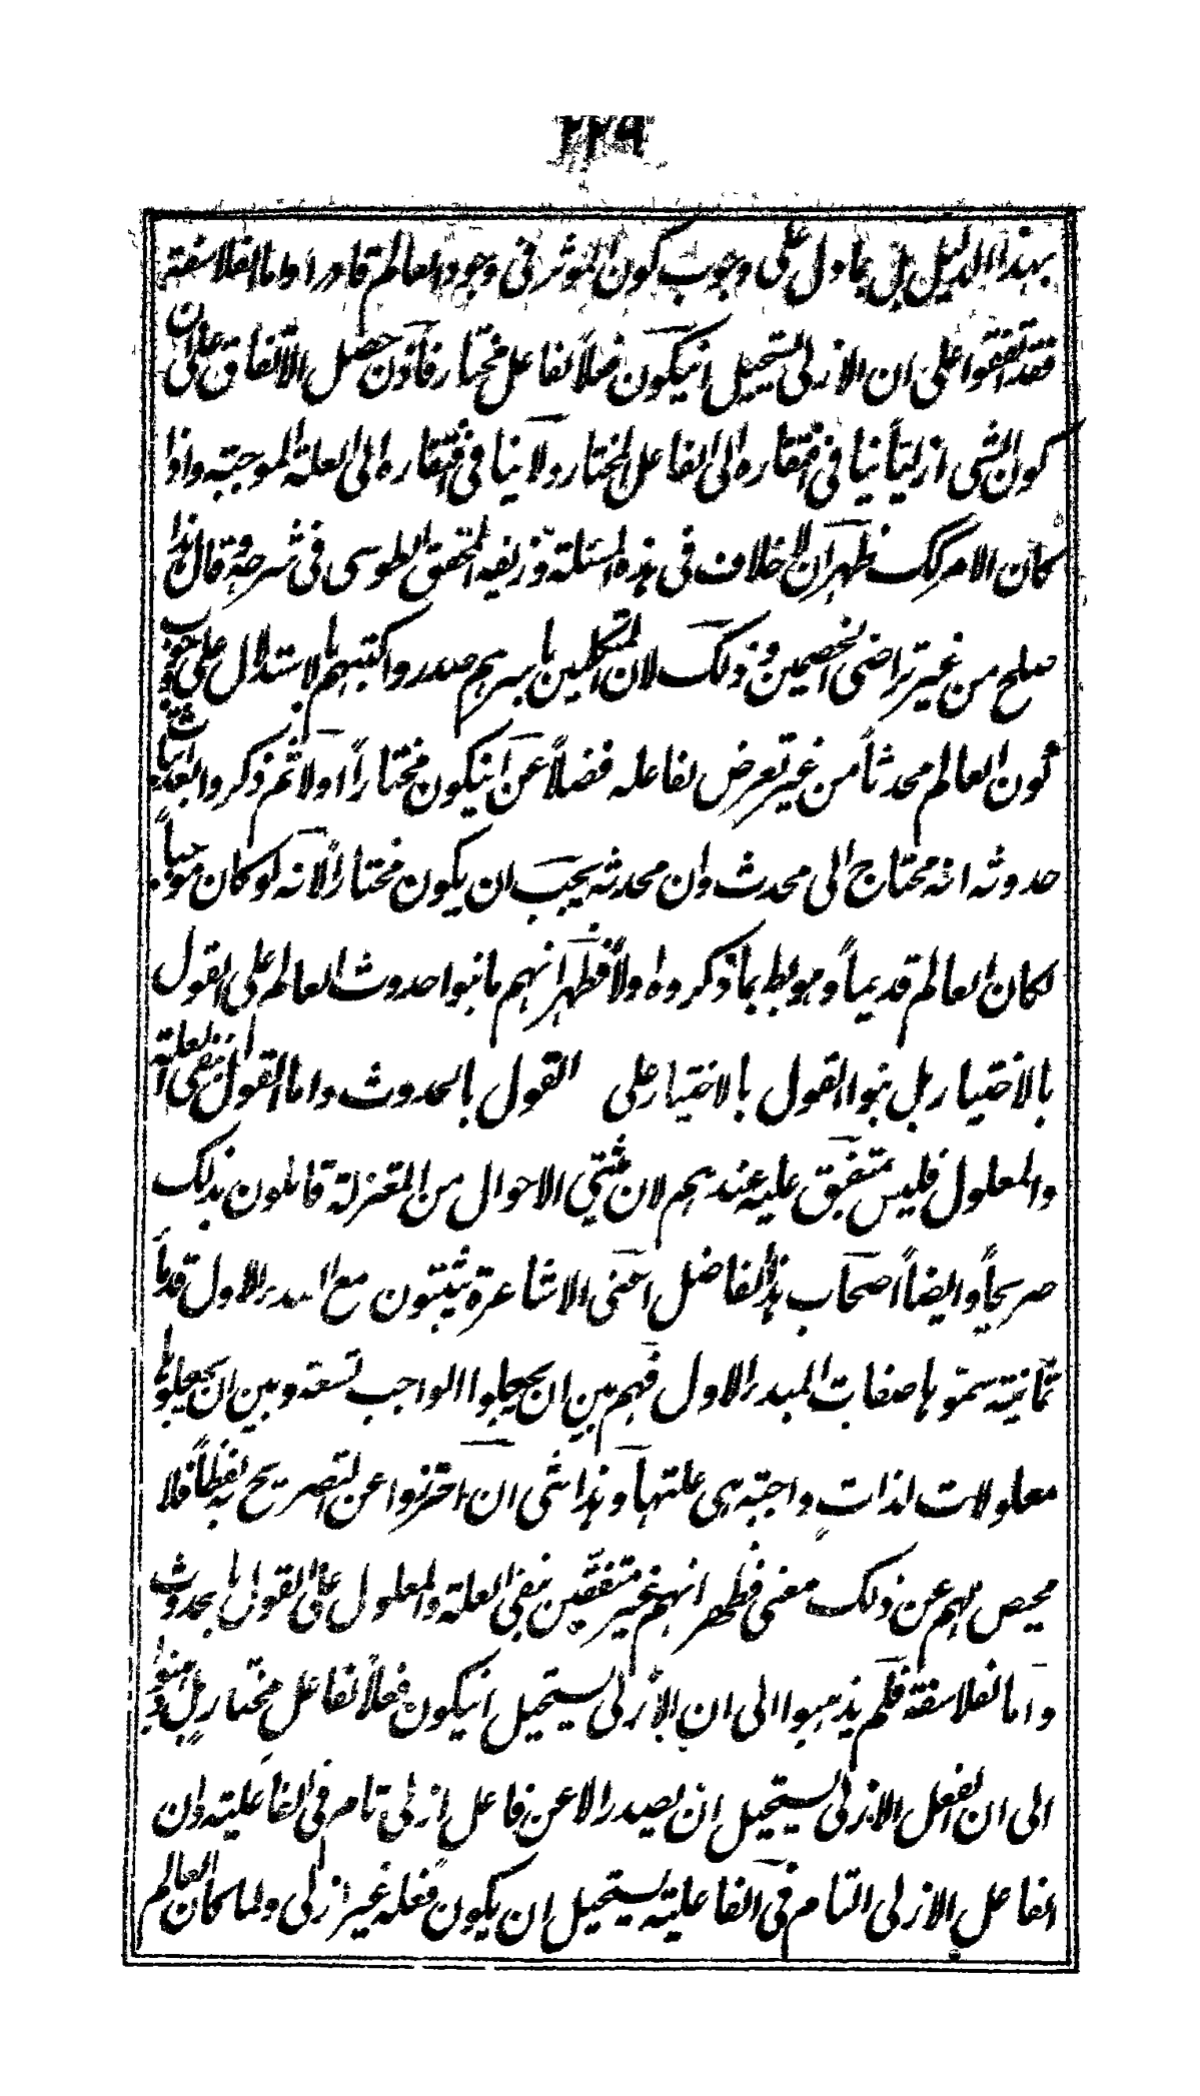 ٢٢٩
بهذا الدليل بل بما دل على وجوب كون المؤثر فى وجود العالم قادرا واما الفلاسفة
فقد اتفقوا على ان الازلى يستحيل انيكون فعلاً لفاعل مختار فاذن حصل الاتفاق على ان
كون الشى ازلياً ينافى افتقاره الى الفاعل المختار ولا ينافى افتقاره الى العلة الموجبة واذا
كان الامر كك ظهر ان لا خلاف فى هذه المسئلة وزيفه المحقق الطوسى فى شرحه وقال هذا
صلح من غير تراضى الخصمين وذلك لان المتكلمين باسرهم صدروا كتبهم بالاستدلال على وجوب
كون العالم محدثاً من غير تعرض لفاعله فضلاً عن انيكون مختاراً اولا ثم ذكروا بعد اثبات
حدوثه انه محتاج الى محدث وان محدثه يجب ان يكون مختاراً لانه لو كان موجباً
لكان العالم قديماً وهو بط بما ذكروه اولاً فظهر انهم ما بنوا حدوث العالم على القول
بالاختيار بل بنوا القول بالاختيار على القول بالحدوث واما القول بنفى العلة
والمعلول فليس بمتفق عليه عندهم لان مثبتى الاحوال من المعتزلة قائلون بذلك
صريحاً وايضاً اصحاب هذا الفاضل اعنى الاشاعرة يثبتون مع المبدء الاول قدماً
ثمانية سموها صفات المبدء الاول فهم بين ان يجعلوا الواجب تسعة وبين ان يجعلوها
معلولات لذات واجبة هى علتها وهذا شى ان احترزوا عن التصريح به لفظاً فلا
محيص لهم عن ذلك معنى فظهر انهم غير متفقين بنفى العلة والمعلول على القول بالحدوث
واما الفلاسفة فلم يذهبوا الى ان الازلى يستحيل انيكون فعلاً لفاعل مختار بل ذهبوا
الى ان الفعل الازلى يستحيل ان يصدر الا عن فاعل ازلى تام فى الفاعلية وان
الفاعل الازلى التام فى الفاعلية يستحيل ان يكون فعله غير ازلى ولما كان العالم